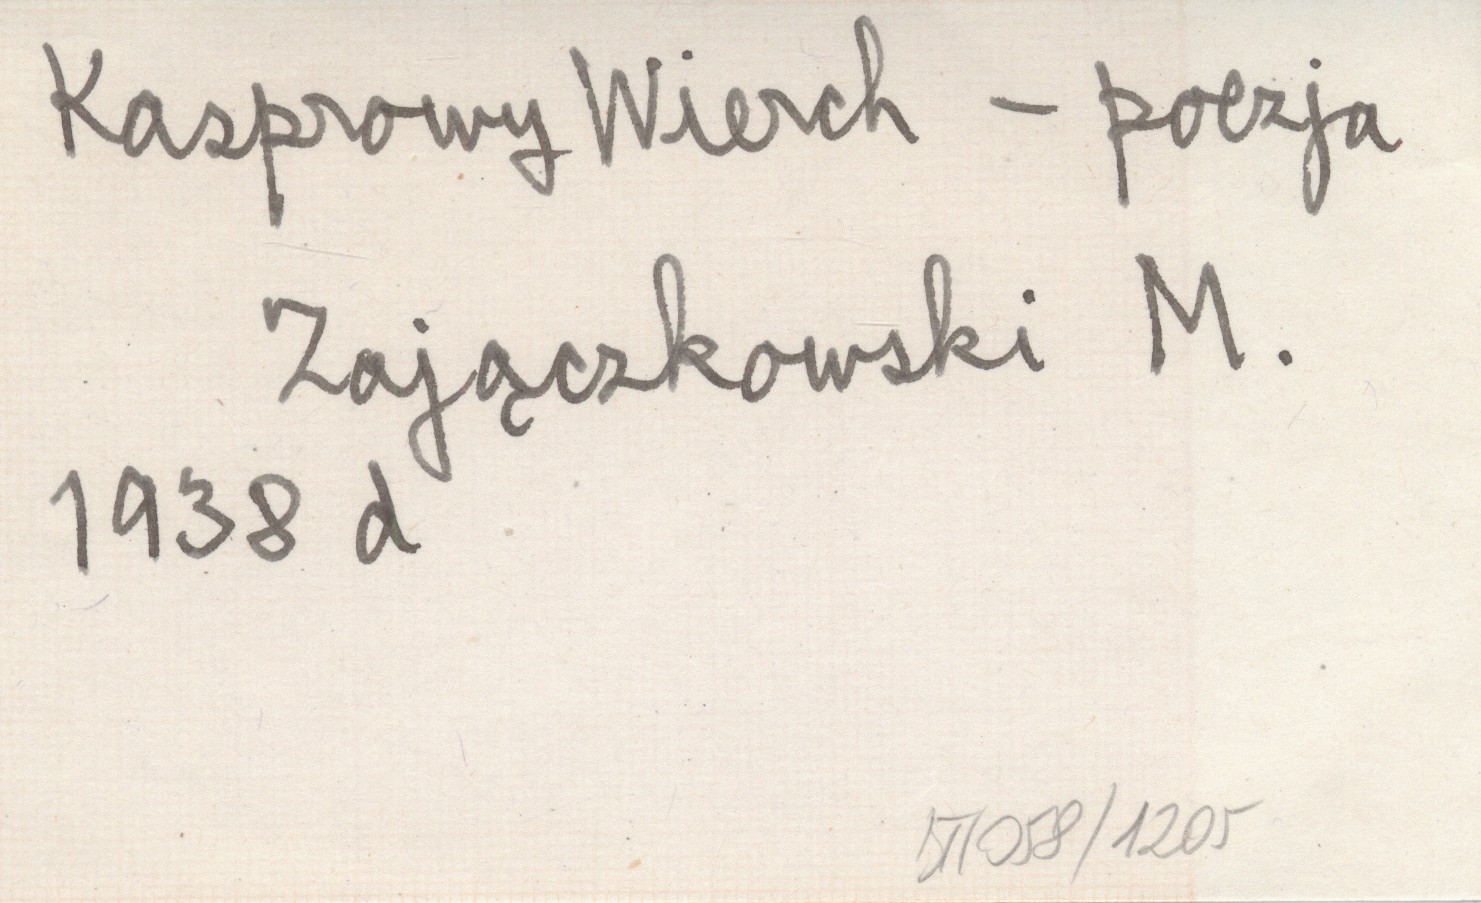 Kasprowy Wierch – poezja
Zajączkowski M.
1938 d
/1205